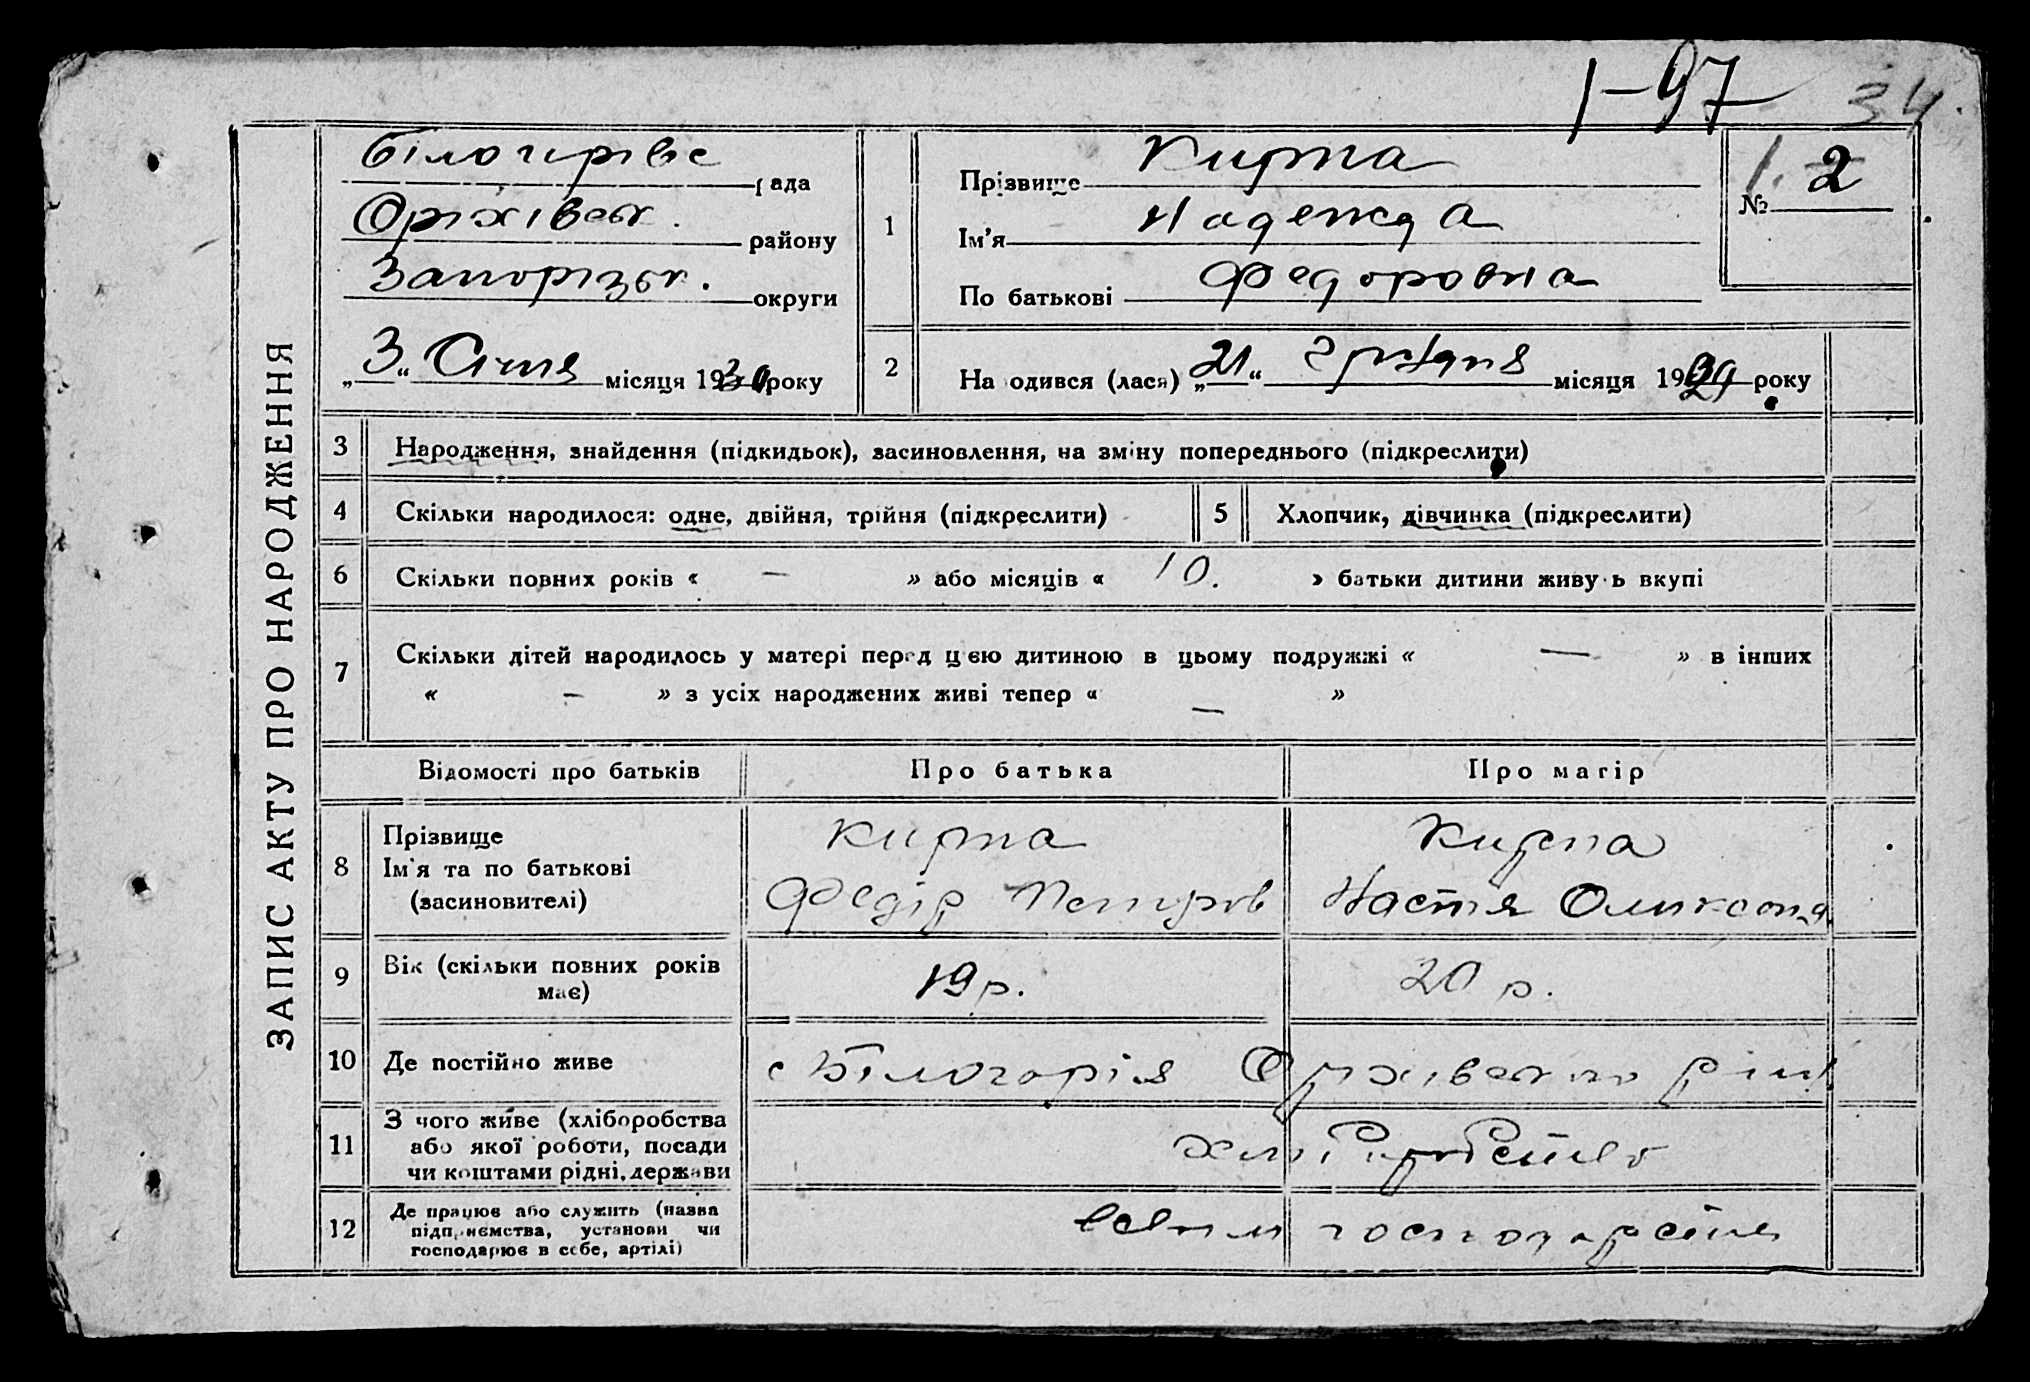 1-97 34
ЗАПИС АКТУ ПРО НАРОДЖЕННЯ
Білогирівс рада
Оріхівськ. району
Запорізьк. округи
„3“ Січня місяця 1930 року
1
Прізвище Кирпа
Ім'я Надежда
По батькові Федоровна
№ 2
2
Народився (лася) „21“ Грудня місяця 1929 року
3 Народження, знайдення (підкидьок), засиновлення, на зміну попереднього (підкреслити)
4 Скільки народилося: одне, двійня, трійня (підкреслити)
5 Хлопчик, дівчинка (підкреслити)
6 Скільки повних років « — » або місяців « 10. » батьки дитини живуть вкупі
7 Скільки дітей народилось у матері перед цією дитиною в цьому подружжі « — » в інших
« — » з усіх народжених живі тепер « — »
Відомості про батьків Про батька Про матір
8 Прізвище
Ім'я та по батькові
(засиновителі)
Кирпа
Федір Петров
Кирпа
Настя
9 Вік (скільки повних років
має)
19 р. 20 р.
10 Де постійно живе
с Білогорія Оріхівського
11 З чого живе (хліборобства
або якої роботи, посади
чи коштами рідні, держави
хліборобство
12 Де працює або служить (назва
підприємства, установи чи
господарює в себе, артілі)
господарстві